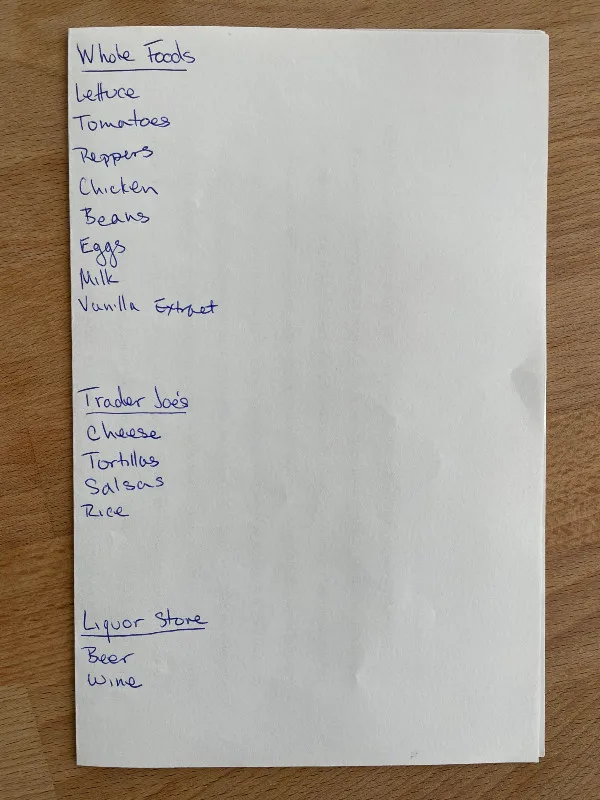 Whole Foods
Lettuce
Tomatoes
Peppers
Chicken
Beans
Eggs
Milk
Vanilla Extract
Trader Joe's
Cheese
Tortillas
Salsas
Rice
Liquor Store
Beer
Wine